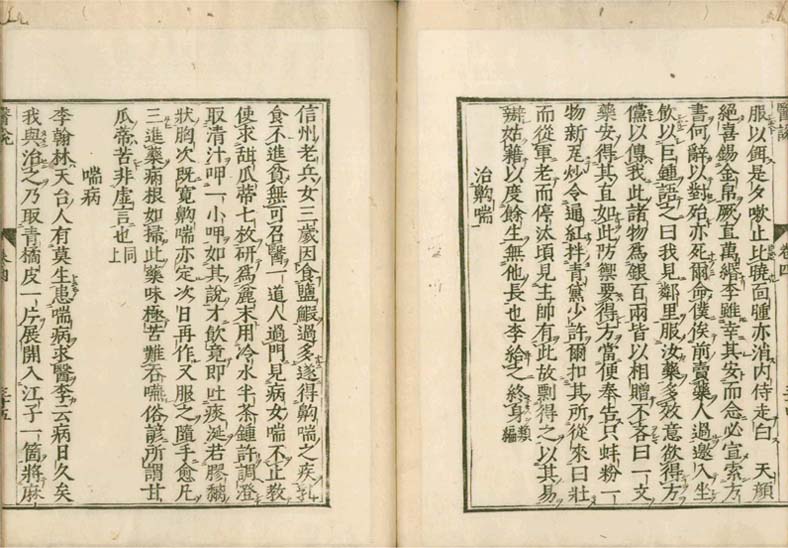 醫說 卷四
服以餌是夕嗽止比曉面腫亦消内侍走白 天顔
絶喜錫金帛厥直萬緡李雖幸其安而念必宣索方
書何辭以對殆亦死爾命僕俟前賣藥人過邀入坐
飲以巨鍾語之曰我見鄰里服汝藥多效意欲得方
儻以傳我此諸物爲銀百兩皆以相贈不吝曰一文
藥安得其直如此防禦要得方當便奉告只蚌粉一
物新瓦炒令通紅拌青黛少許爾扣其所從來曰壯
而從軍老而停汰頃見主帥有此故剽得之以其易
辦姑藉以度餘生無他長也李給之終身類編
治齁喘
信州老兵女三歳因食鹽鰕過多遂得齁喘之疾乳
食不進貧無可召醫一道人過門見病女喘不止教
使求甜瓜蒂七枚研爲麁末用冷水半茶鍾許調澄
取清汁呷一小呷如其說才飲竟即吐痰涎若膠黐
狀胸次既寛齁喘亦定次日再作又服之隨手愈凡
三進藥病根如掃此藥味極苦難吞嚥俗諺所謂甘
瓜蒂苦非虚言也同上
喘病
李翰林天台人有莫生患喘病求醫李云病日久矣
我與治之乃取青橘皮一片展開入江子一箇將麻
醫說 卷四